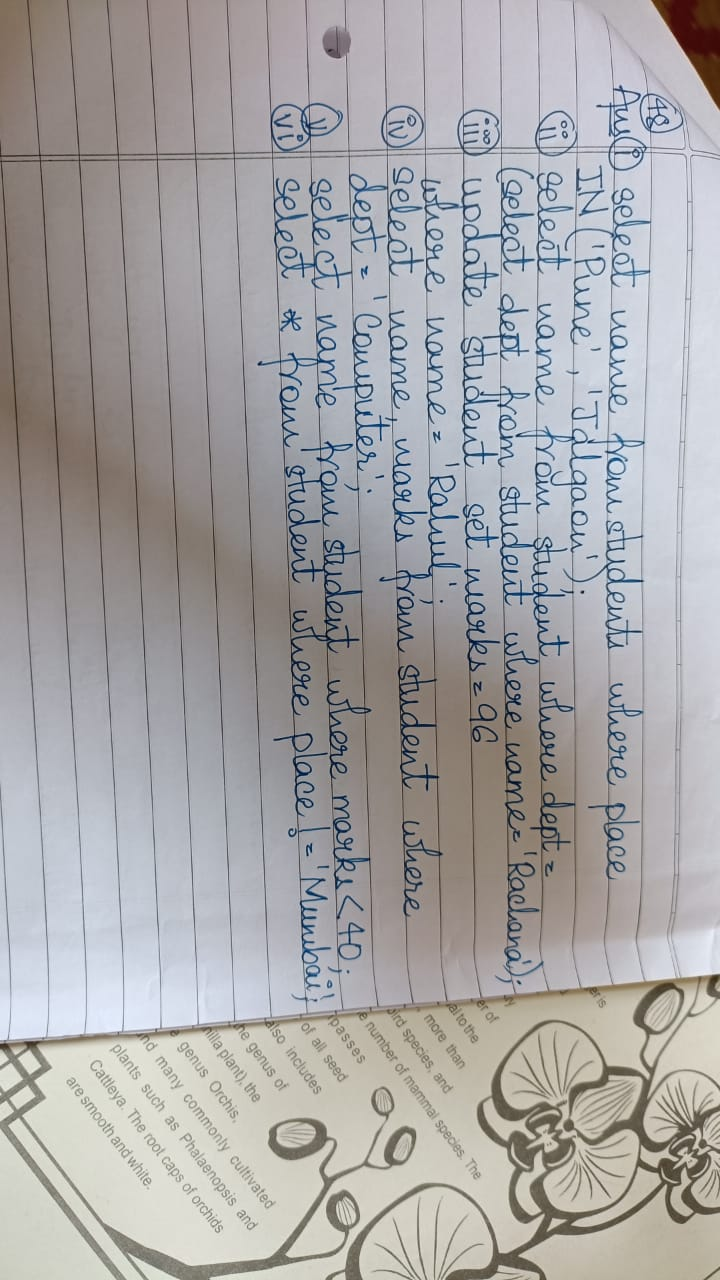 48
Ans i select name from students where place
IN ('Pune', 'Jalgaon');
ii select name from student where dept =
(select dept from student where name= 'Rachana');
iii update student set marks = 96
where name = 'Rahul';
iv select name, marks from student where
dept = 'Computer';
v select name from student where marks < 40;
vi select * from student where place != 'Mumbai';
er is
er of
al to the
more than
bird species, and
e number of mammal species. The
passes
of all seed
also includes
he genus of
nilla plant), the
e genus Orchis,
nd many commonly cultivated
plants such as Phalaenopsis and
Cattleya. The root caps of orchids
are smooth and white.